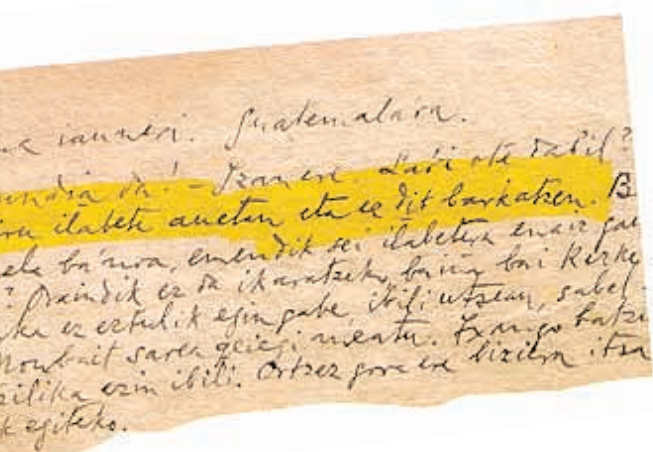 iaunneri. Guatemalara.
undia da! - Izan ere. Labi ote dabil?
ilabete auetan eta ez dit barkatzen. B
ela ba'noa, emendik sei ilabetera enaiz gau
? Oraindik ez da ikaratzeko, baiña bai kezke
ka ez eztulik egin gabe, ibili utsean, sabel
Nonbait sarea geiegi meatu. Izango batzu
zilika ezin ibili. Ortzez gora ere biziera itsa
k egiteko.